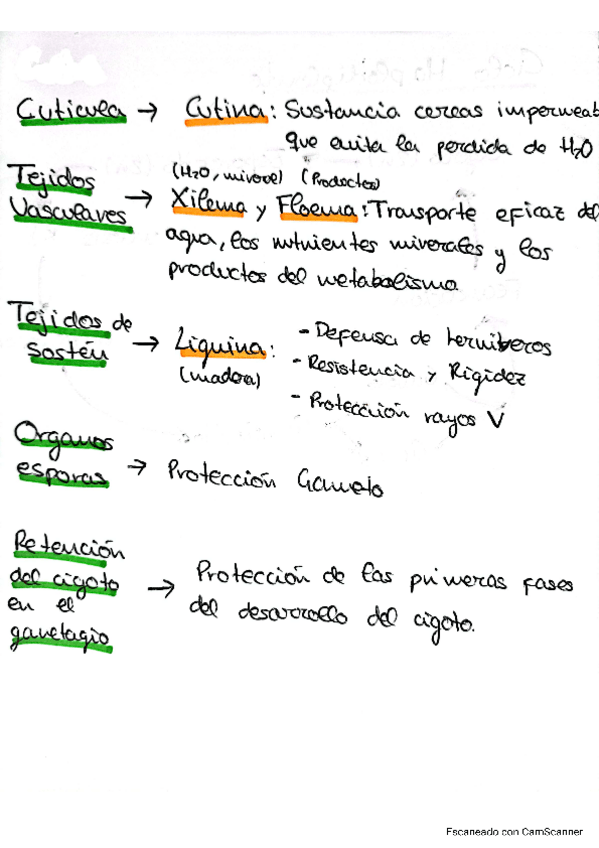 Cuticula → Cutina: Sustancia cereas impermeab
que evita la perdida de H2O
Tejidos Vasculares → (H2O, mineral) (Productos)
Xilema y Floema: Transporte eficaz del
agua, los nutrientes minerales y los
productos del metabolismo
Tejidos de Sostén → Liguina: - Defensa de herviberos
(madera) - Resistencia y Rigidez
- Protección rayos V
Organos esporas → Protección Gameto
Retención del cigoto en el gametagio → Protección de las primeras fases
del desarrollo del cigoto.
Escaneado con CamScanner